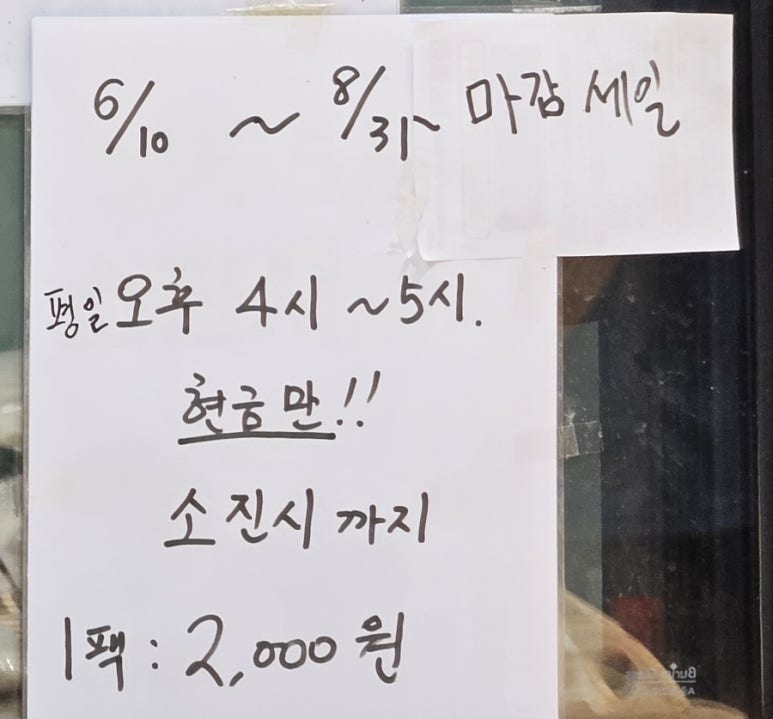 6/10 ~ 8/31 마감 세일
평일 오후 4시 ~5시.
현금만!!
소진시 까지
1팩 : 2,000원